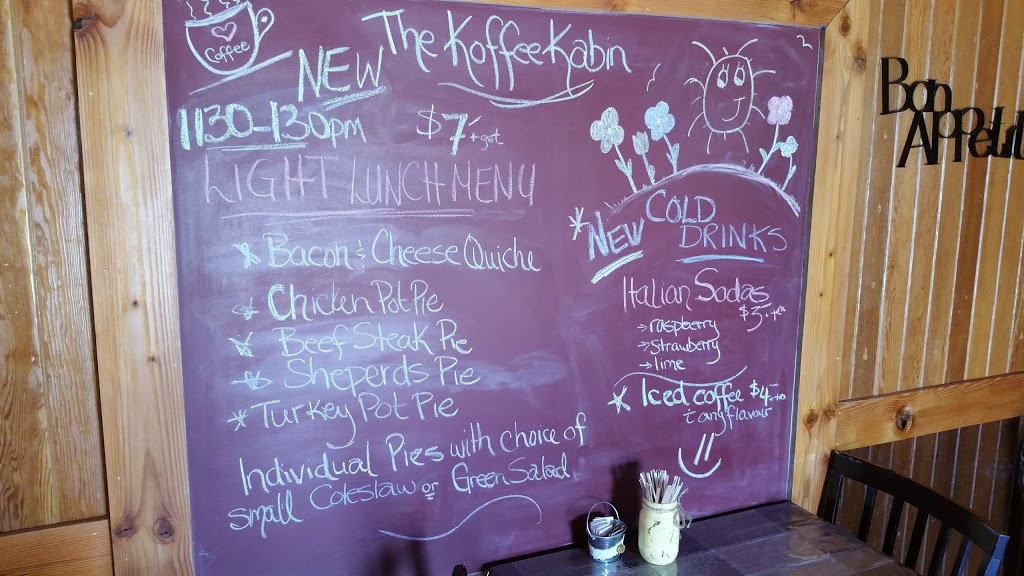 Coffee
The Koffee Kabin
NEW
1130-130pm
$7 + gst
LIGHT LUNCH MENU
* Bacon & Cheese Quiche
* Chicken Pot Pie
* Beef Steak Pie
* Sheperds Pie
* Turkey Pot Pie
Individual Pies with choice of
small Coleslaw or Green Salad!
* NEW COLD
DRINKS
Italian Sodas
$3
→ raspberry
→ Strawberry
→ lime
* Iced coffee $4
Bon
Appetit